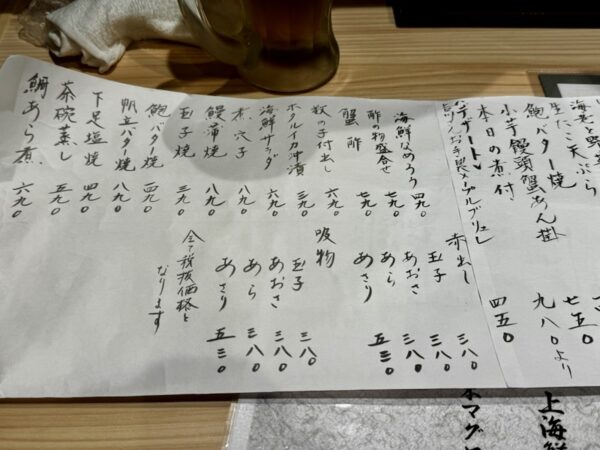 生たこ天ぷら 七五〇
鮑バター焼 九八〇より
小芋饅頭蟹あん掛
本日の煮付
デザート
四五〇
海鮮なめろう 四九〇
酢の物盛合せ 七九〇
蟹酢 七九〇
秋の子付出し 六九〇
ホタルイカ沖漬 三九〇
海鮮サラダ 六九〇
煮穴子 八九〇
鰻蒲焼 八九〇
玉子焼 三九〇
鮑バター焼 四九〇
帆立バター焼 八九〇
下足塩焼 四九〇
茶碗蒸し 五九〇
鯛あら煮 六九〇
赤出し 三八〇
玉子 三八〇
あおさ 三八〇
あら 三八〇
あさり 五三〇
吸物
玉子 三八〇
あおさ 三八〇
あら 三八〇
あさり 五三〇
全て税抜価格と
なります
上海鮮
本マグロ